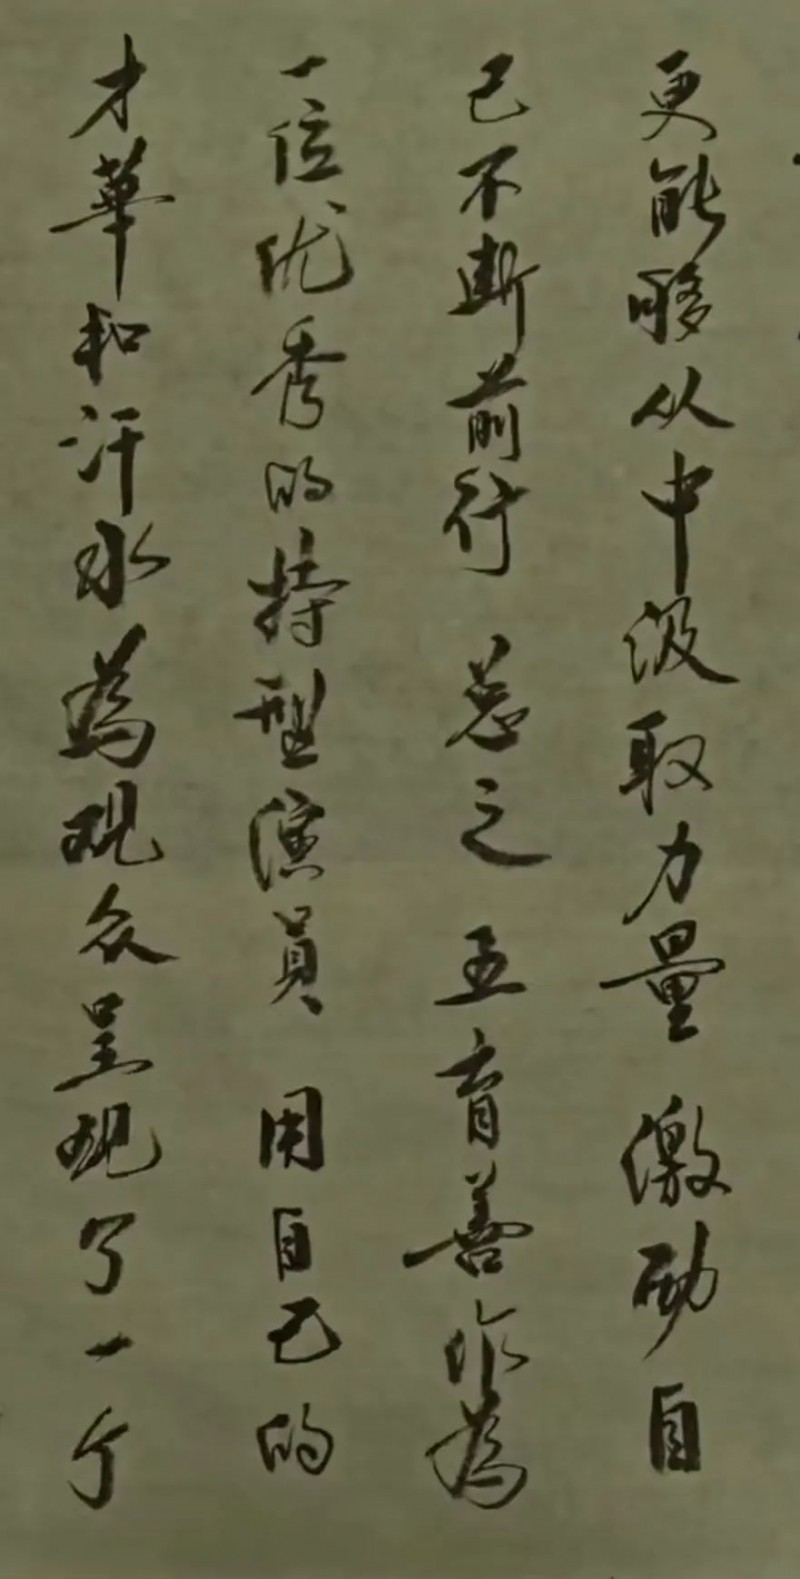 更能够从中汲取力量 激励自
己不断前行 总之 王育善作為
一位优秀的特型演員 用自己的
才華和汗水為观众呈现了一个